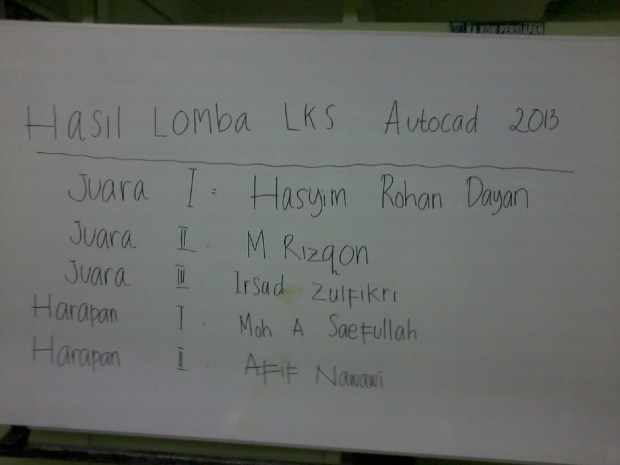 RA KOM PERSIAPAN
Hasil Lomba LKS Autocad 2013
Juara I = Hasyim Rohan Dayan
Juara II . M Rizqon
Juara III . Irsad Zulfikri
Harapan I . Moh A Saefullah
Harapan II . Afif Nawawi